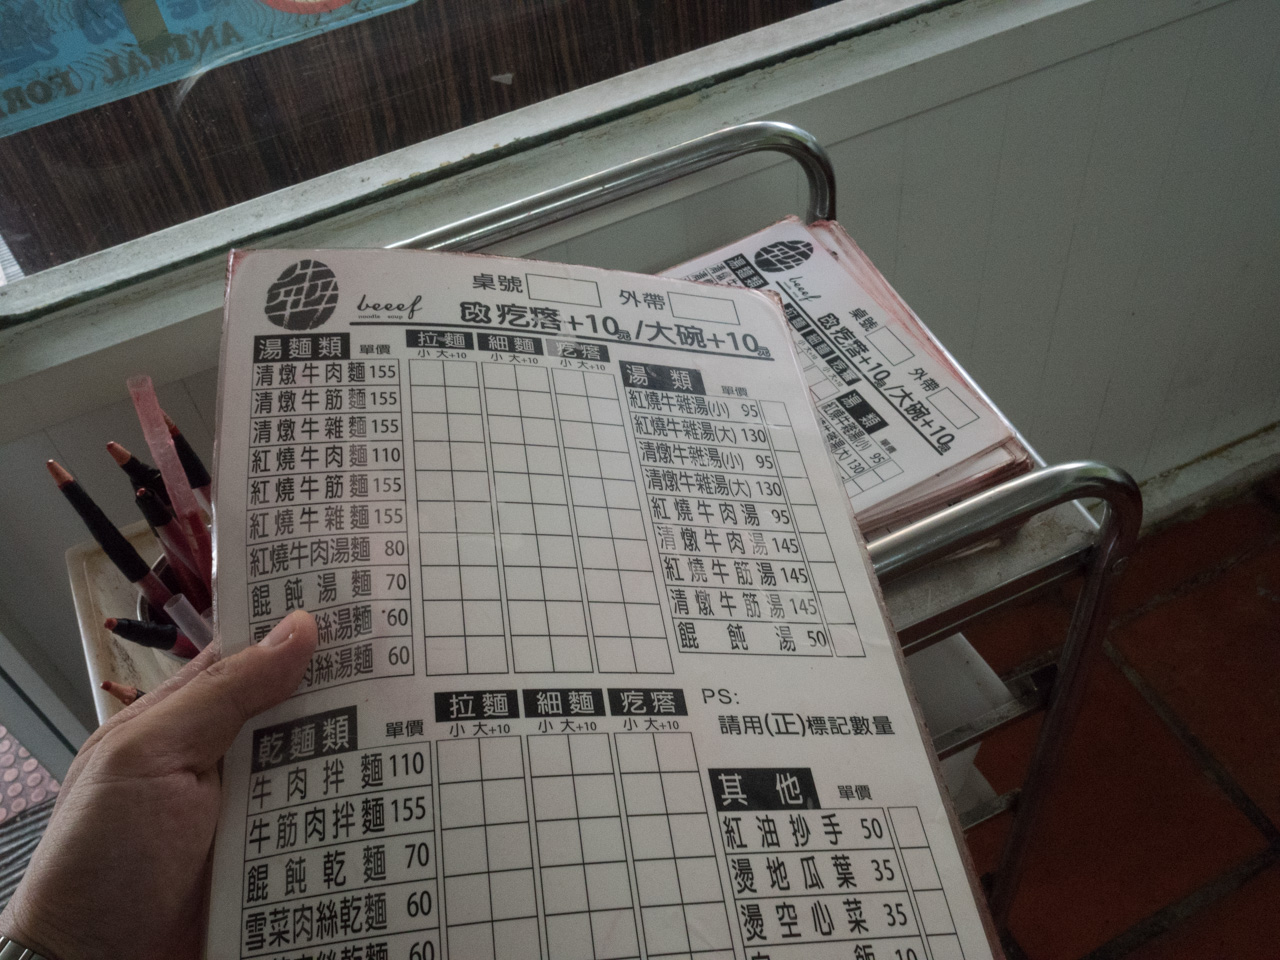 ANIMAL FOR
beeef
noodle soup
桌號
外帶
改疙瘩+10元/大碗+10元
湯麵類 單價 拉麵 細麵 疙瘩
小 大+10 小 大+10 小 大+10
清燉牛肉麵 155
清燉牛筋麵 155
清燉牛雜麵 155
紅燒牛肉麵 110
紅燒牛筋麵 155
紅燒牛雜麵 155
紅燒牛肉湯麵 80
餛飩湯麵 70
絲湯麵 60
肉絲湯麵 60
湯類 單價
紅燒牛雜湯(小) 95
紅燒牛雜湯(大) 130
清燉牛雜湯(小) 95
清燉牛雜湯(大) 130
紅燒牛肉湯 95
清燉牛肉湯 145
紅燒牛筋湯 145
清燉牛筋湯 145
餛飩湯 50
PS:
請用(正)標記數量
乾麵類 單價 拉麵 細麵 疙瘩
小 大+10 小 大+10 小 大+10
牛肉拌麵 110
牛筋肉拌麵 155
餛飩乾麵 70
雪菜肉絲乾麵 60
肉絲乾麵 60
其他 單價
紅油抄手 50
燙地瓜葉 35
燙空心菜 35
飯 10
beeef
桌號
外帶
改疙瘩+10元/大碗+10元
湯類 單價
紅燒牛雜湯(小) 95
130